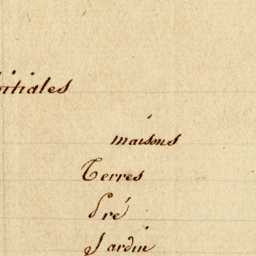 itiales
maisons
Terres
Pré
Jardin